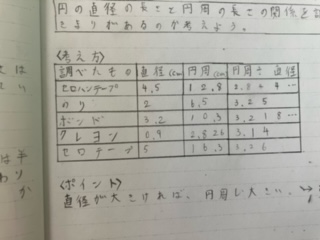 円の直径の長さと円周の長さの関係を
きまりがあるのか考えよう。
〈考え方〉
調べたもの 直径(cm) 円周(cm) 円周÷直径
セロハンテープ 4,5 12,8 2,844…
のり 2 6,5 3,25
ボンド 3,2 10,3 3,218…
クレヨン 0,9 2,826 3,14
セロテープ 5 16,3 3,26
〈ポイント〉
直径が大きければ、円周も大きい。